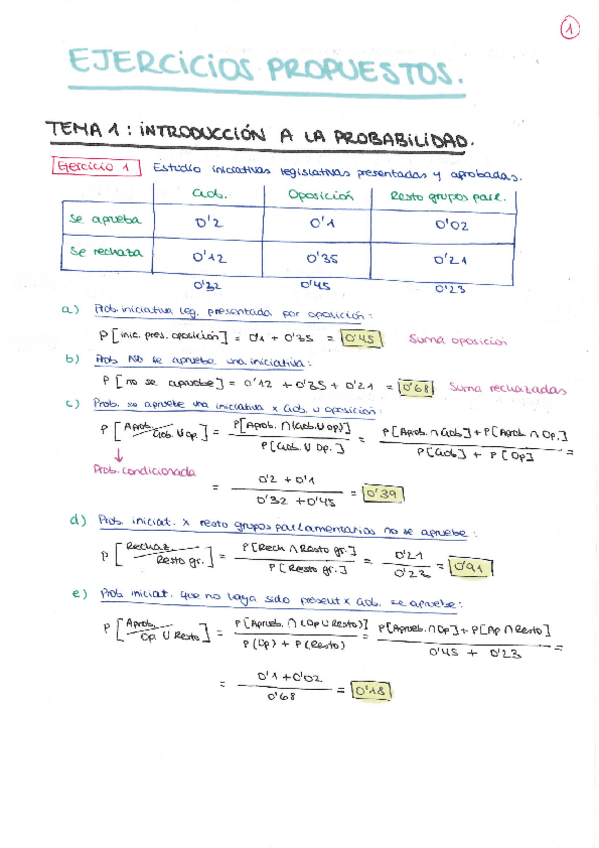 1
EJERCICIOS PROPUESTOS.
TEMA 1: INTRODUCCIÓN A LA PROBABILIDAD.
Ejercicio 1 Estudio iniciativas legislativas presentadas y aprobadas.
Gob. Oposición Resto grupos parl.
Se aprueba 0'2 0'1 0'02
Se rechaza 0'12 0'35 0'21
0'32 0'45 0'23
a) Prob. iniciativa leg. presentada por oposición:
P[inic. pres. oposición] = 0'1 + 0'35 = 0'45 Suma oposición
b) Prob. NO se apruebe una iniciativa:
P[no se apruebe] = 0'12 + 0'35 + 0'21 = 0'68 Suma rechazadas
c) Prob. se apruebe una iniciativa x Gob. u oposición:
P[Aprob./Gob. U Op.] = P[Aprob. ∩ (Gob. U Op)] / P[Gob. U Op.] = P[Aprob. ∩ Gob.] + P[Aprob. ∩ Op.] / P[Gob] + P[Op] =
Prob. condicionada
= 0'2 + 0'1 / 0'32 + 0'45 = 0'39
d) Prob. iniciat. x resto grupos parlamentarios no se apruebe:
P[Rechaz./Resto gr.] = P[Rech ∩ Resto gr.] / P[Resto gr.] = 0'21 / 0'23 = 0'91
e) Prob iniciat. que no haya sido present x Gob. se apruebe:
P[Aprob./Op. U Resto] = P[Aprueb. ∩ (Op U Resto)] / P(Op) + P(Resto) = P[Aprueb. ∩ Op] + P[Ap ∩ Resto] / 0'45 + 0'23 =
= 0'1 + 0'02 / 0'68 = 0'18